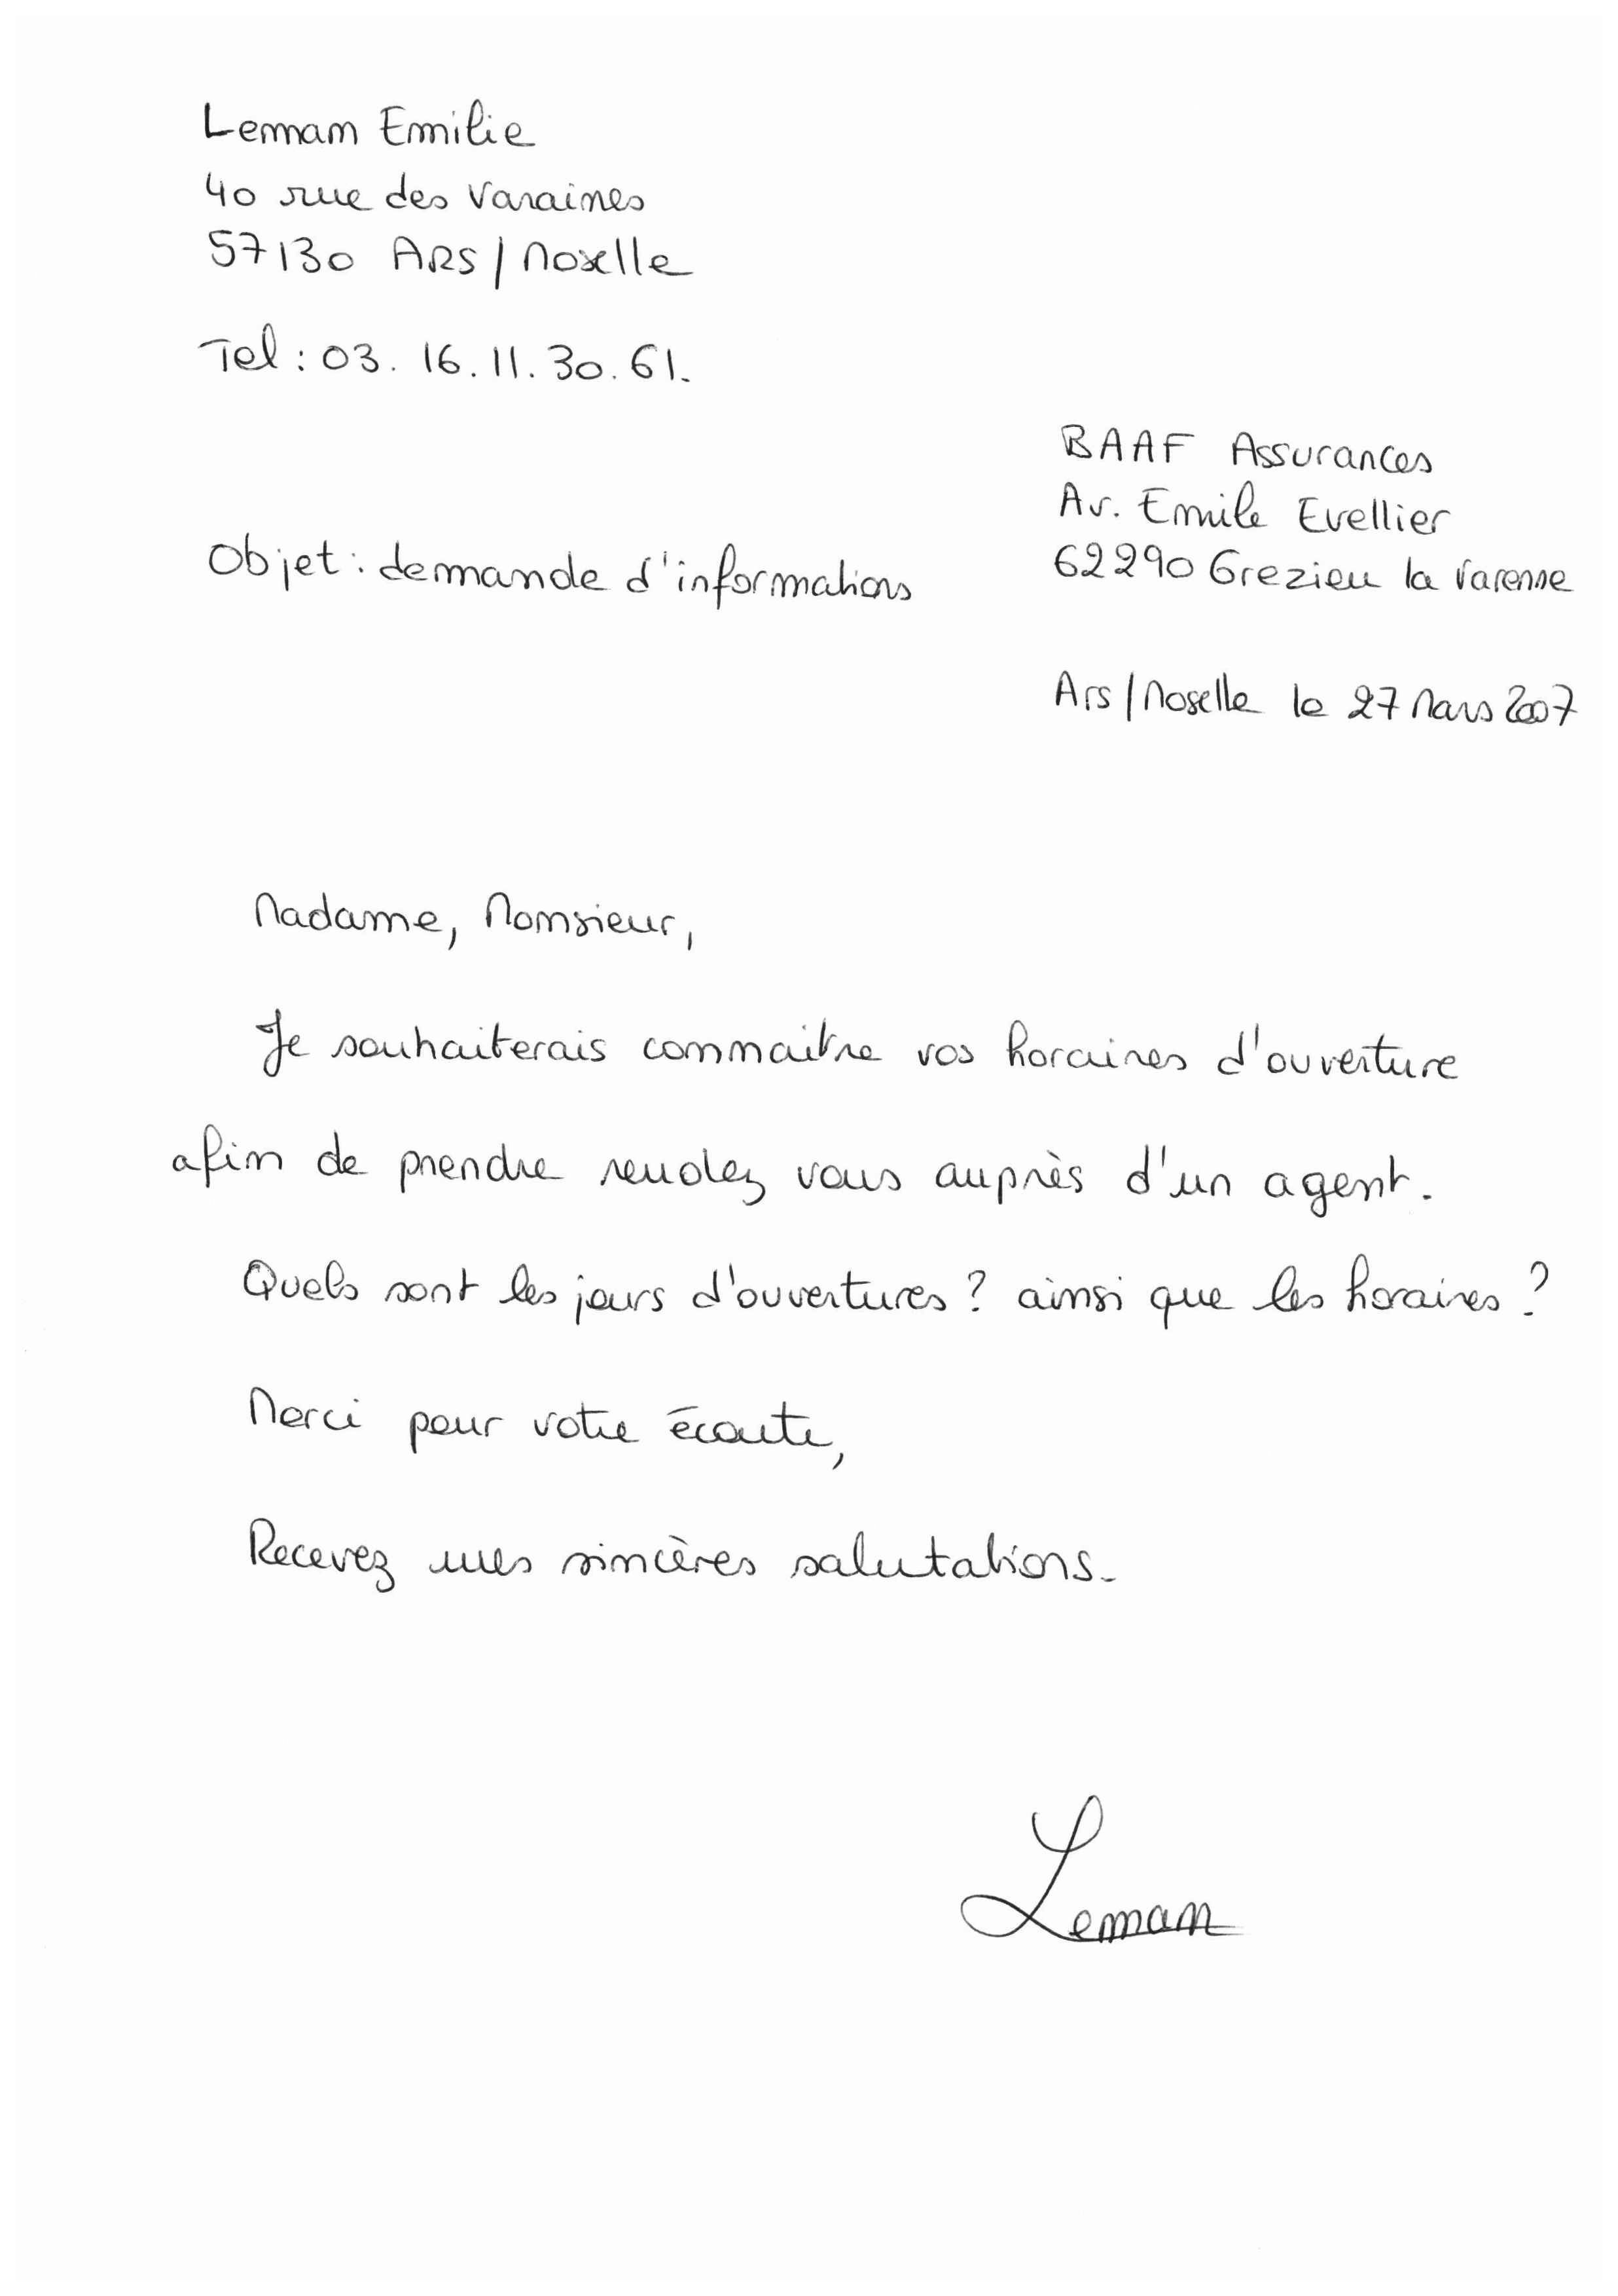 Leman Emilie
40 rue des Varaines
57130 ARS/Moselle
Tel : 03. 16. 11. 30. 61.
BAAF Assurances
Av. Emile Evellier
62290 Grezieu la Varenne
Objet : demande d'informations
Ars/Moselle le 27 Mars 2007
Madame, Monsieur,
Je souhaiterais connaitre vos horaires d'ouverture
afin de prendre rendez vous auprès d'un agent.
Quels sont les jours d'ouvertures ? ainsi que les horaires ?
Merci pour votre écoute,
Recevez mes sincères salutations.
Leman